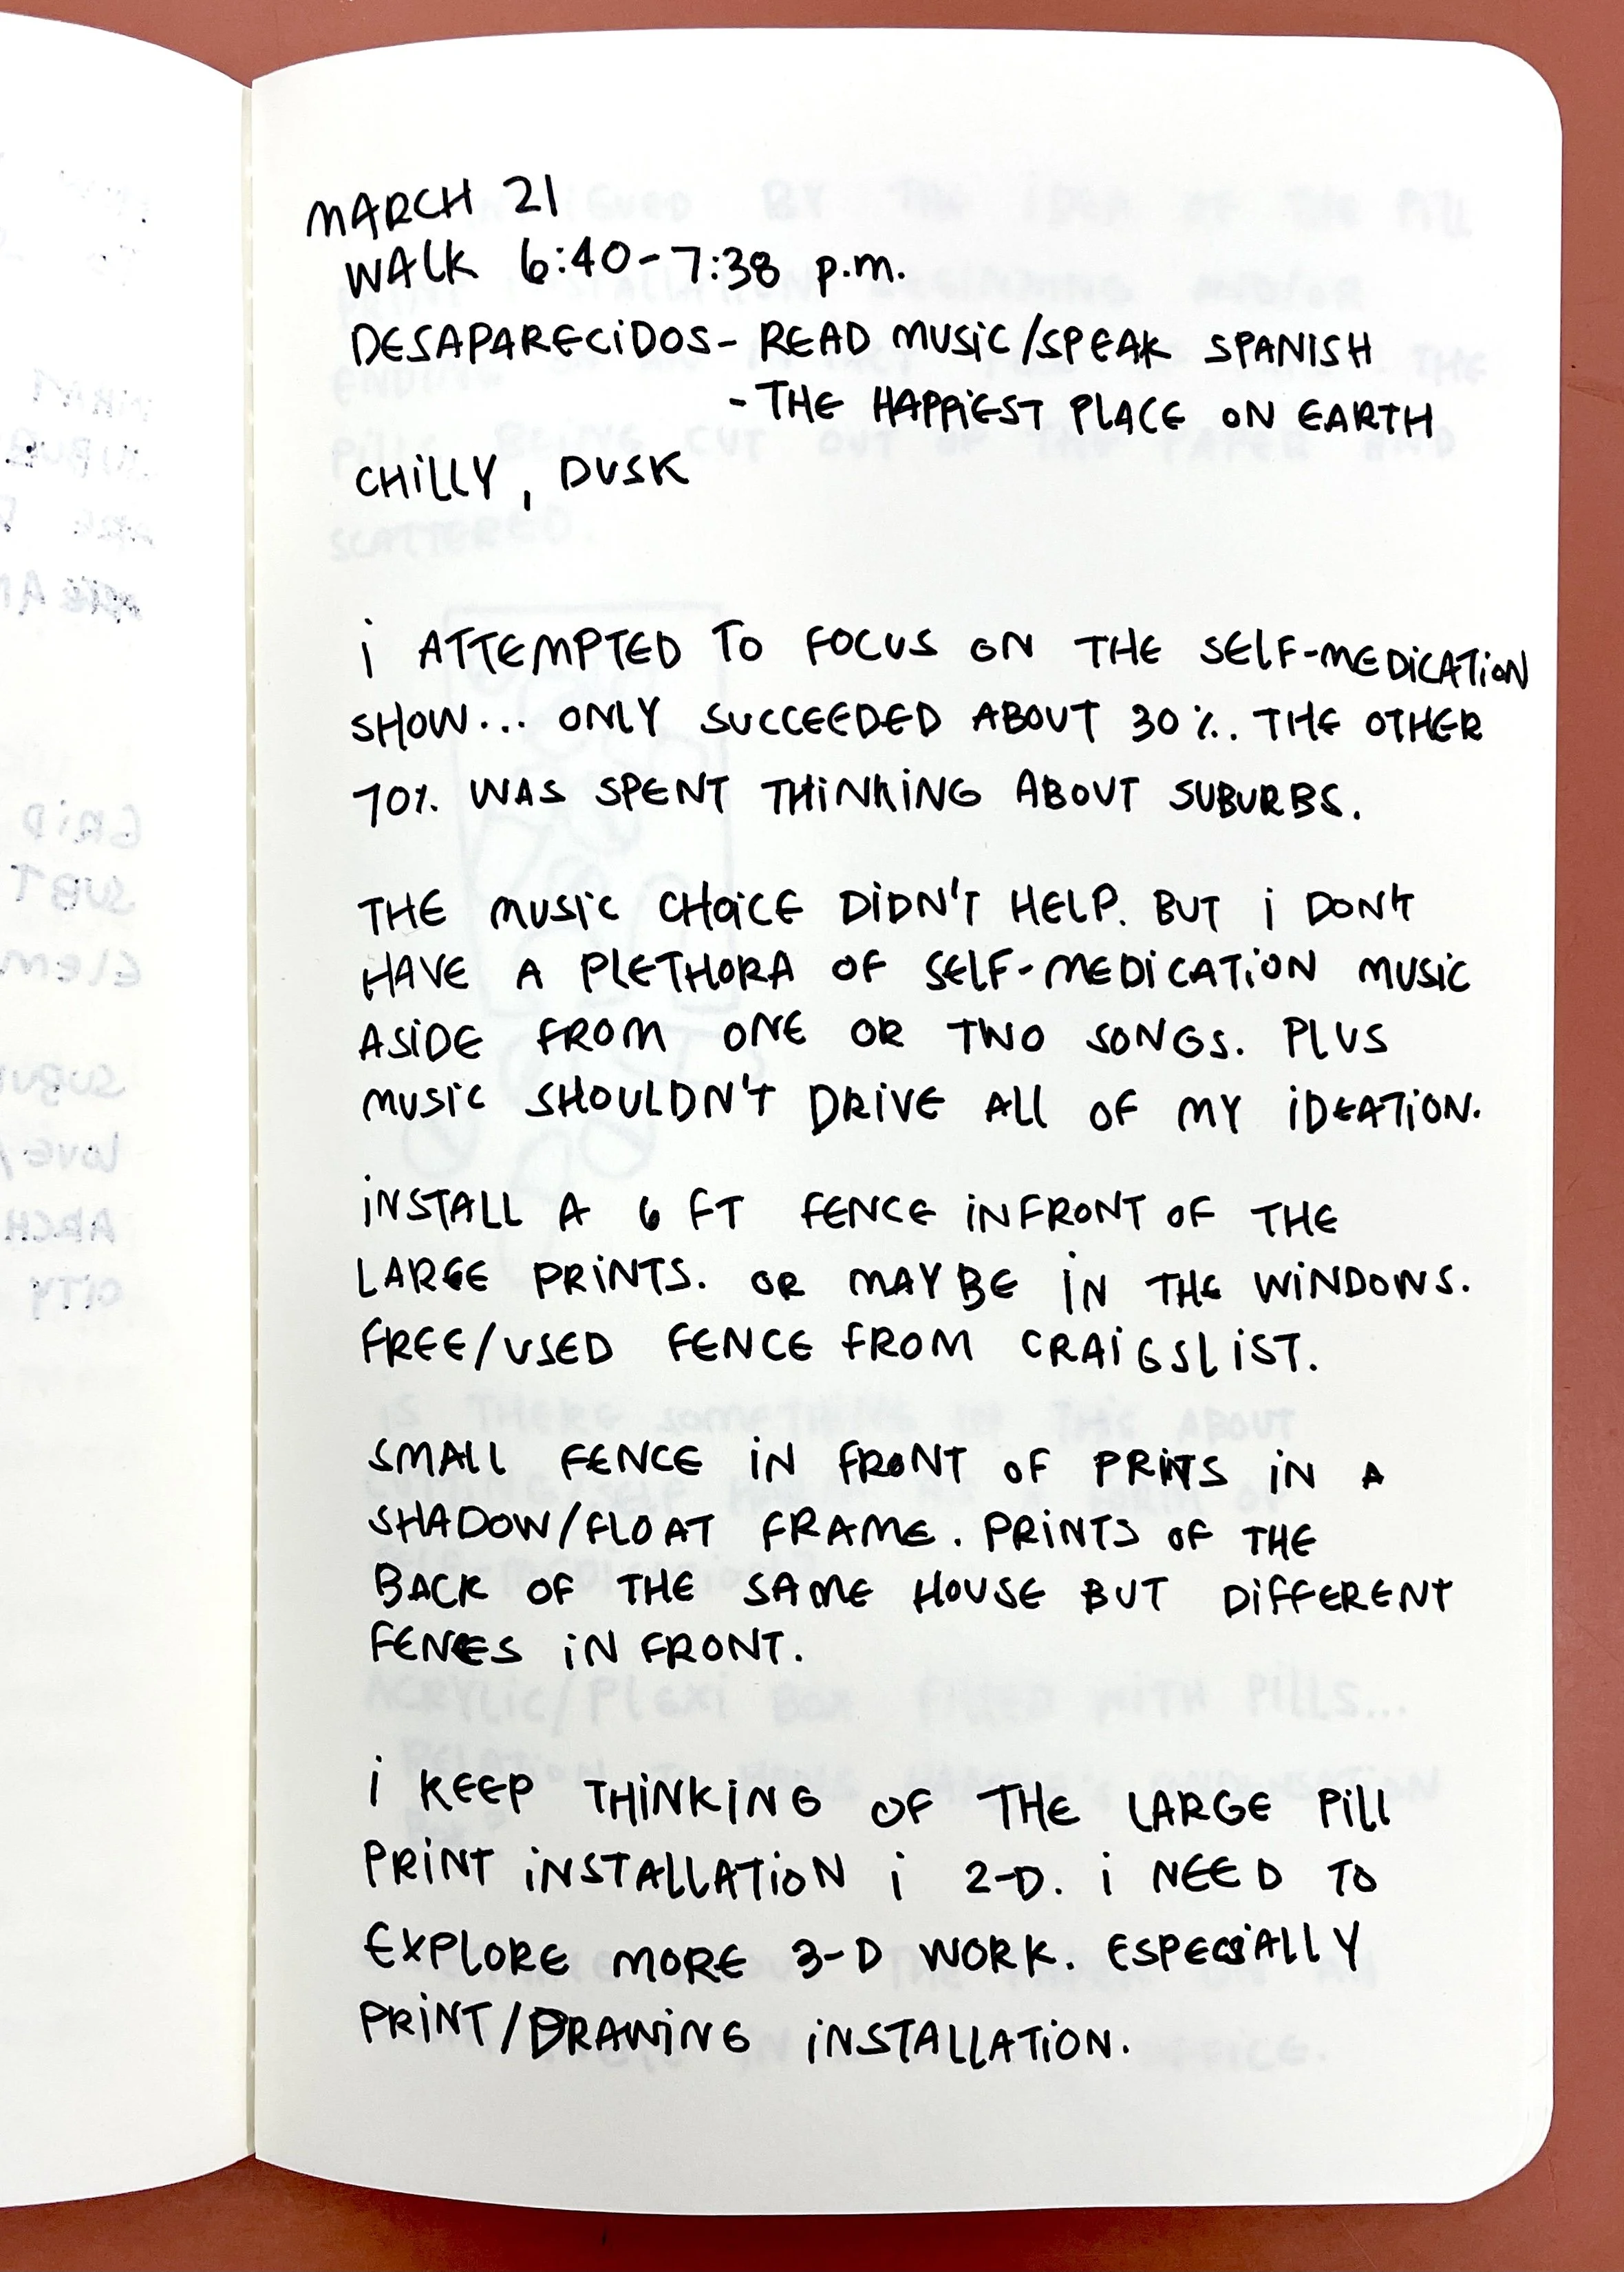 MARCH 21
WALK 6:40-7:38 p.m.
DESAPARECiDOS- READ MUSiC/SPEAK SPANISH
- THE HAPPiEST PLACE ON EARTH
CHiLLY, DUSK
i ATTEMPTED TO FOCUS ON THE SELF-MEDiCATiON
SHOW... ONLY SUCCEEDED ABOUT 30%. THE OTHER
70% WAS SPENT THiNKiNG ABOUT SUBURBS.
THE MUSiC CHOiCE DiDN'T HELP. BUT i DON'T
HAVE A PLETHORA OF SELF-MEDiCATiON MUSiC
ASiDE FROM ONE OR TWO SONGS. PLUS
MUSiC SHOULDN'T DRiVE ALL OF MY iDEATiON.
iNSTALL A 6 FT FENCE iNFRONT OF THE
LARGE PRiNTS. OR MAYBE iN THE WiNDOWS.
FREE/USED FENCE FROM CRAiGSLiST.
SMALL FENCE iN FRONT OF PRiNTS iN A
SHADOW/FLOAT FRAME. PRiNTS OF THE
BACK OF THE SAME HOUSE BUT DiFFERENT
FENCES iN FRONT.
i KEEP THiNKiNG OF THE LARGE PiLL
PRiNT iNSTALLATiON i 2-D. i NEED TO
EXPLORE MORE 3-D WORK. ESPECiALLY
PRiNT/DRAWiNG iNSTALLATiON.